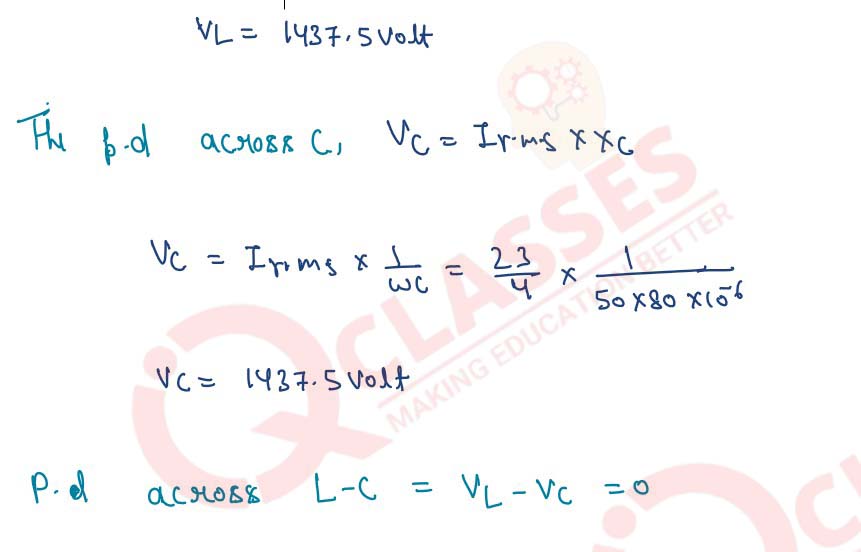 VL = 1437.5 Volt
The p.d across C, VC = Ir.m.s × XC
VC = Ir.ms × 1/ωC = 23/4 × 1/50×80×10⁻⁶
VC = 1437.5 Volt
P.d across L-C = VL - VC = 0
CLASSES
MAKING EDUCATION BETTER